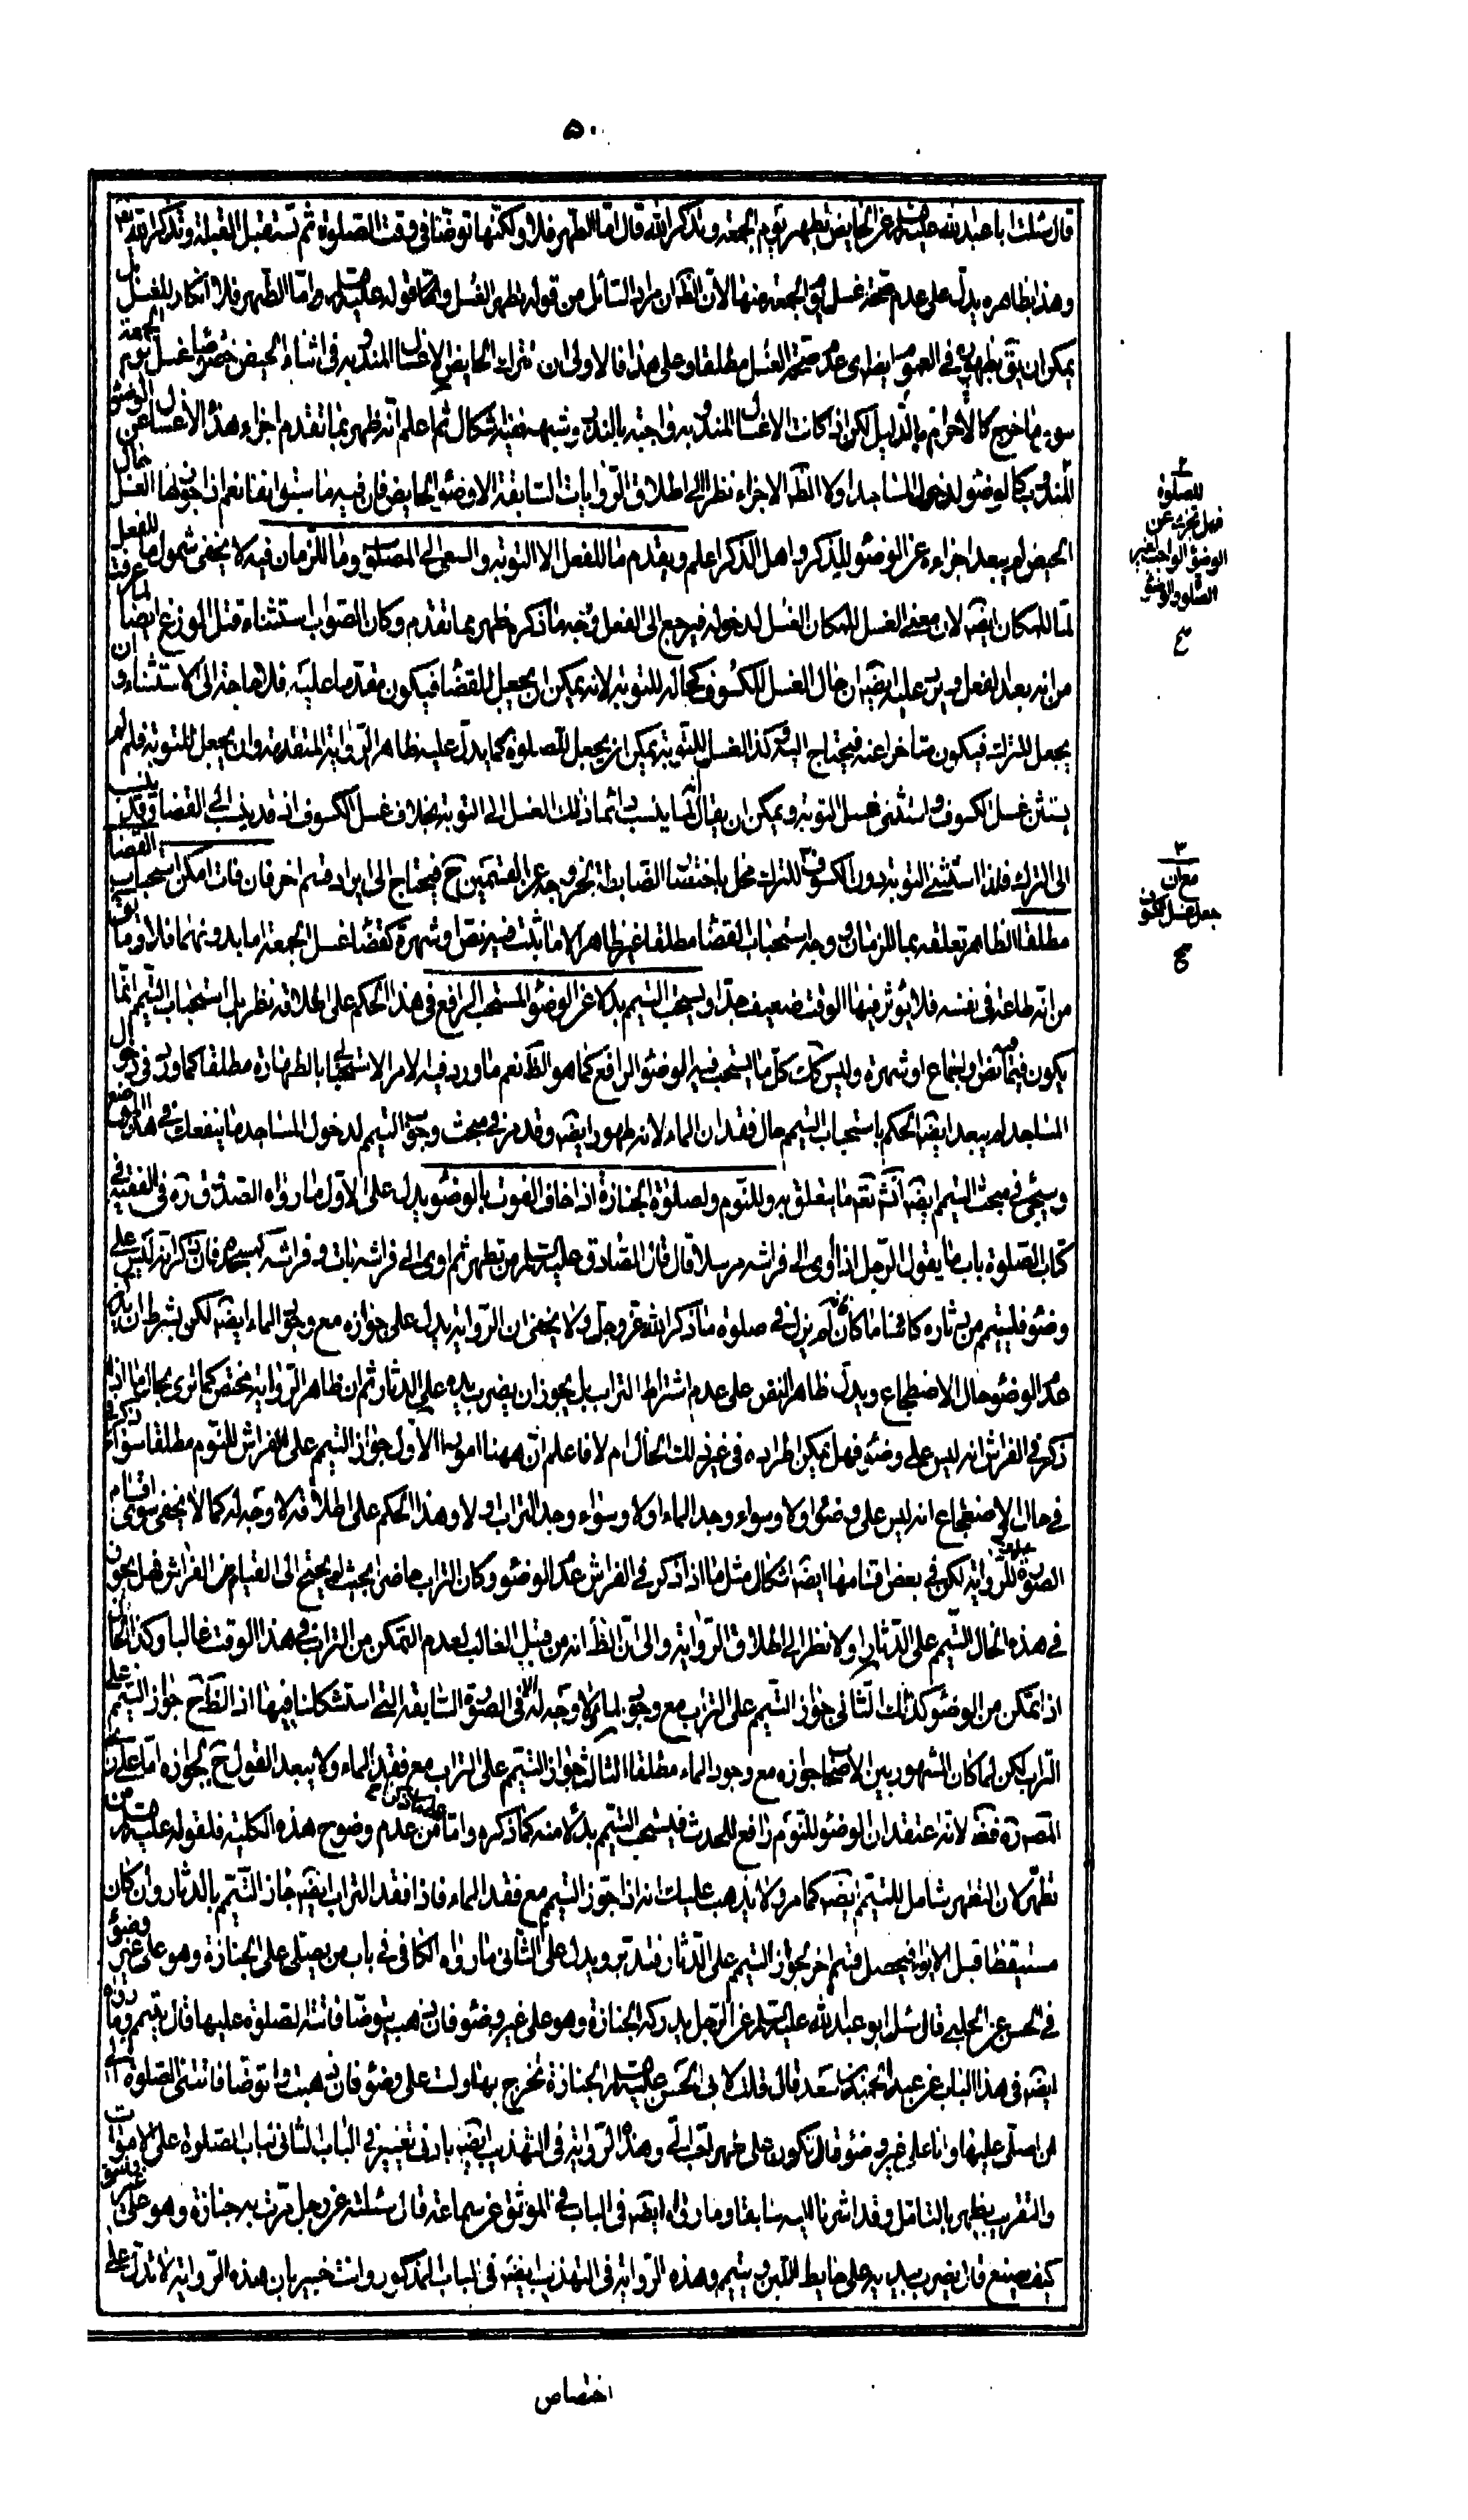 ٥٠
قال سئلت ابا عبد الله عليه السلام عن الحايض تطهر يوم الجمعة وتذكر الله قال اما الطهر فلا ولكنها توضأ في وقت الصلوة ثم تستقبل القبلة وتذكر الله تع
وهذا بظاهره يدل على عدم صحة غسل يوم الجمعة منها لان الظ ان مراد السائل من قوله تطهر الغسل وكذا قوله عليه السلم واما الطهر فلا انكار للغسل بل
يمكن ان يق بظهوره في العموم ايضا اى عدم صحة الغسل مطلقا وعلى هذا فالاولى ان تترك الحايض الاغسال المندوبه في اثناء الحيض خصوصا غسل يوم الجمعة
سوى ما خرج كالاحرام بالدليل لكن اذا كانت الاغسال المندوبه واجبة بالنذر وشبهه ففيه اشكال ثم اعلم انه ظهر بما تقدم اجزاء هذه الاغسال عن الوضوء
المندوب كالوضوء لدخول المساجد اولا الظ الاجزاء نظرا الى اطلاق الروايات السابقة الا وضوء الحايض فان فيه ما سبق انفا نعم اذا جوزنا لها الغسل حال
الحيض لم يبعد اجزاءه عن الوضوء للذكر واهل الذكر اعلم ويقدم ما للفعل الا التوبه والسعى الى المصلوب وما للزمان فيه لا يخفى شمول ما للفعل
لما للمكان ايضا لان معنى الغسل للمكان الغسل لدخوله فيرجع الى الفعل وجه ما ذكره ظهر بما تقدم وكان الصواب استثناء قتل الوزغ ايضا لما عرفت
من انه بعد الفعل ويرد عليه ايضا ان حال الغسل للكسوف كحاله للتوبه لانه يمكن ان يجعل للقضا فيكون مقدما عليه فلا حاجة الى الاستثناء وان
يجعل للترك فيكون متاخرا عنه فيحتاج اليه وكذا الغسل للتوبه يمكن ان يجعل للصلوة كما يدل عليه ظاهر الرواية المتقدمة وان يجعل للتوبة فلم لم
يستثن غسل الكسوف واستثنى غسل التوبه ويمكن ان يقال انما ينسب دائما ذلك الغسل الى التوبه بخلاف غسل الكسوف اذ قد ينسب الى القضا وقد ينسب
الى الترك فلذا استثنى التوبه دون الكسوف للترك مخل باختصا الضابطة لخروجه عن القسمين ح فيحتاج الى ايراد قسم اخر فان فات امكن استحباب القضا
مطلقا الظاهر تعلقه بما للزمان ووجه استحباب القضا مطلقا غير ظاهر الا ما ثبت فيه نص او شهرة كقضا غسل الجمعة اما بدونهما فلا وما يق
من انه طاعة في نفسه فلا يؤثر فيها الوقت ضعيف جدا ويستحب التيمم بدلا عن الوضوء المستحب الرافع في هذا الحكم على اطلاقه نظر بل استحباب التيمم انما
يكون فيما فيه نص واجماع او شهرة وليس كك كل ما يستحب فيه الوضوء الرافع كما هو الظ نعم ما ورد فيه الامر الاستحبابى بالطهارة مطلقا كما ورد في دخول
المساجد لم يبعد ايضا الحكم باستحباب التيمم حال فقدان الماء لانه طهور ايضا وقد مر في مبحث وجوب التيمم لدخول المساجد ما ينفعك في هذا الموضع
وسيجئ في مبحث التيمم ايضا انش تع ما يتعلق به وللنوم ولصلوة الجنازة اذا خاف الفوت بالوضوء يدل على الاول ما رواه الصدوق ره في الفقيه في
كتاب الصلوة باب ما يقول الرجل اذا أوى الى فراشه مرسلا قال قال الصادق عليه السلم من تطهر ثم اوى الى فراشه بات وفراشه كمسجده فان ذكر انه ليس على
وضوء فليتيمم من دثاره كائنا ما كان لم يزل في صلوة ما ذكر الله عز وجل ولا يخفى ان الرواية يدل على جوازه مع وجود الماء ايضا لكن بشرط ان يذكر
عدم الوضوء حال الاضطجاع ويدل ظاهر النص على عدم اشتراط التراب بل يجوز ان يضرب يده على الدثار ثم ان ظاهر الرواية مختص كما ترى بحال ما اذا
ذكر في الفراش انه ليس على وضوء فهل يمكن اطراده في غير ذلك الحال ام لا فاعلم ان ههنا امورا الاول جواز التيمم على الفراش للنوم مطلقا سواء ذكر
في حال الاضطجاع انه ليس على وضوء اولا وسواء وجد الماء اولا وسواء وجد التراب او لا وهذا الحكم على اطلاقه لا وجه له كما لا يخفى سوى اقسام
الصورة للرواية لكن في بعض اقسامها ايضا اشكال مثل ما اذا ذكر في الفراش عدم الوضوء وكان التراب حاضرا بحيث لم يحتج الى القيام من الفراش فهل يجوز
في هذه الحال التيمم على الدثار اولا نظرا الى اطلاق الرواية والى ان الظ انه من قبيل الغالب لعدم التمكن من التراب في هذا الوقت غالبا وكذا الحال
اذا تمكن من الوضوء كذلك الثانى جواز التيمم على التراب مع وجود الماء ولا وجه له الا في الصورة السابقة التى استشكلنا فيها اذ الظ ح جواز التيمم على
التراب لكن لما كان المشهور بين الاصحاب جوازه مع وجود الماء مطلقا الثالث جواز التيمم على التراب مع فقد الماء ولا يبعد القول ح بجوازه اما على راى
المص ره فظ لانه اعتقد ان الوضوء للنوم رافع للحدث فيستحب التيمم بدلا منه كما ذكره واما من عدم وضوح هذه الكلية فلقوله عليه السلم من
تطهر لان التطهر شامل للتيمم ايضا كما مر ولا يذهب عليك انه اذا جوز التيمم مع فقد الماء فاذا فقد التراب ايضا جاز التيمم بالدثار وان كان
مستيقظا قبل الايواء فيحصل قسم اخر لجواز التيمم على الدثار فتدبر ويدل على الثانى ما رواه الكافي في باب من يصلى على الجنازة وهو على غير وضوء
في الحسن عن الحلبى قال سئل ابو عبد الله عليه السلم عن الرجل يدركه الجنازة وهو على غير وضوء فان ذهب يتوضأ فاتته الصلوة عليها قال يتيمم وما رواه
ايضا في هذا الباب عن عبد الحميد بن سعد قال قلت لابى الحسن عليه السلم الجنازة تخرج بها ولست على وضوء فان ذهبت اتوضأ فاتتنى الصلوة الى
ان اصلى عليها وانا على غير وضوء قال تكون على طهر احب الى وهذه الرواية في التهذيب ايضا بادنى تغيير في الباب الثانى لباب الصلوة على الاموات
والتقريب يظهر بالتامل وقد اشرنا اليه سابقا وما رواه ايضا في الباب في الموثق عن سماعة قال سئلته عن رجل مرت به جنازة وهو على غير وضوء
كيف يصنع قال يضرب بيديه على حايط اللبن ويتيمم وهذه الرواية في التهذيب ايضا في الباب المذكور وانت خبير بان هذه الرواية لا تدل على
اختصاص
٢
للصلوة
فهل تجزى عن
الوضوء الواجب لغير
الصلوة او الوضوء
ع
٣
مع ان
جعل غسل الكسوف
ع